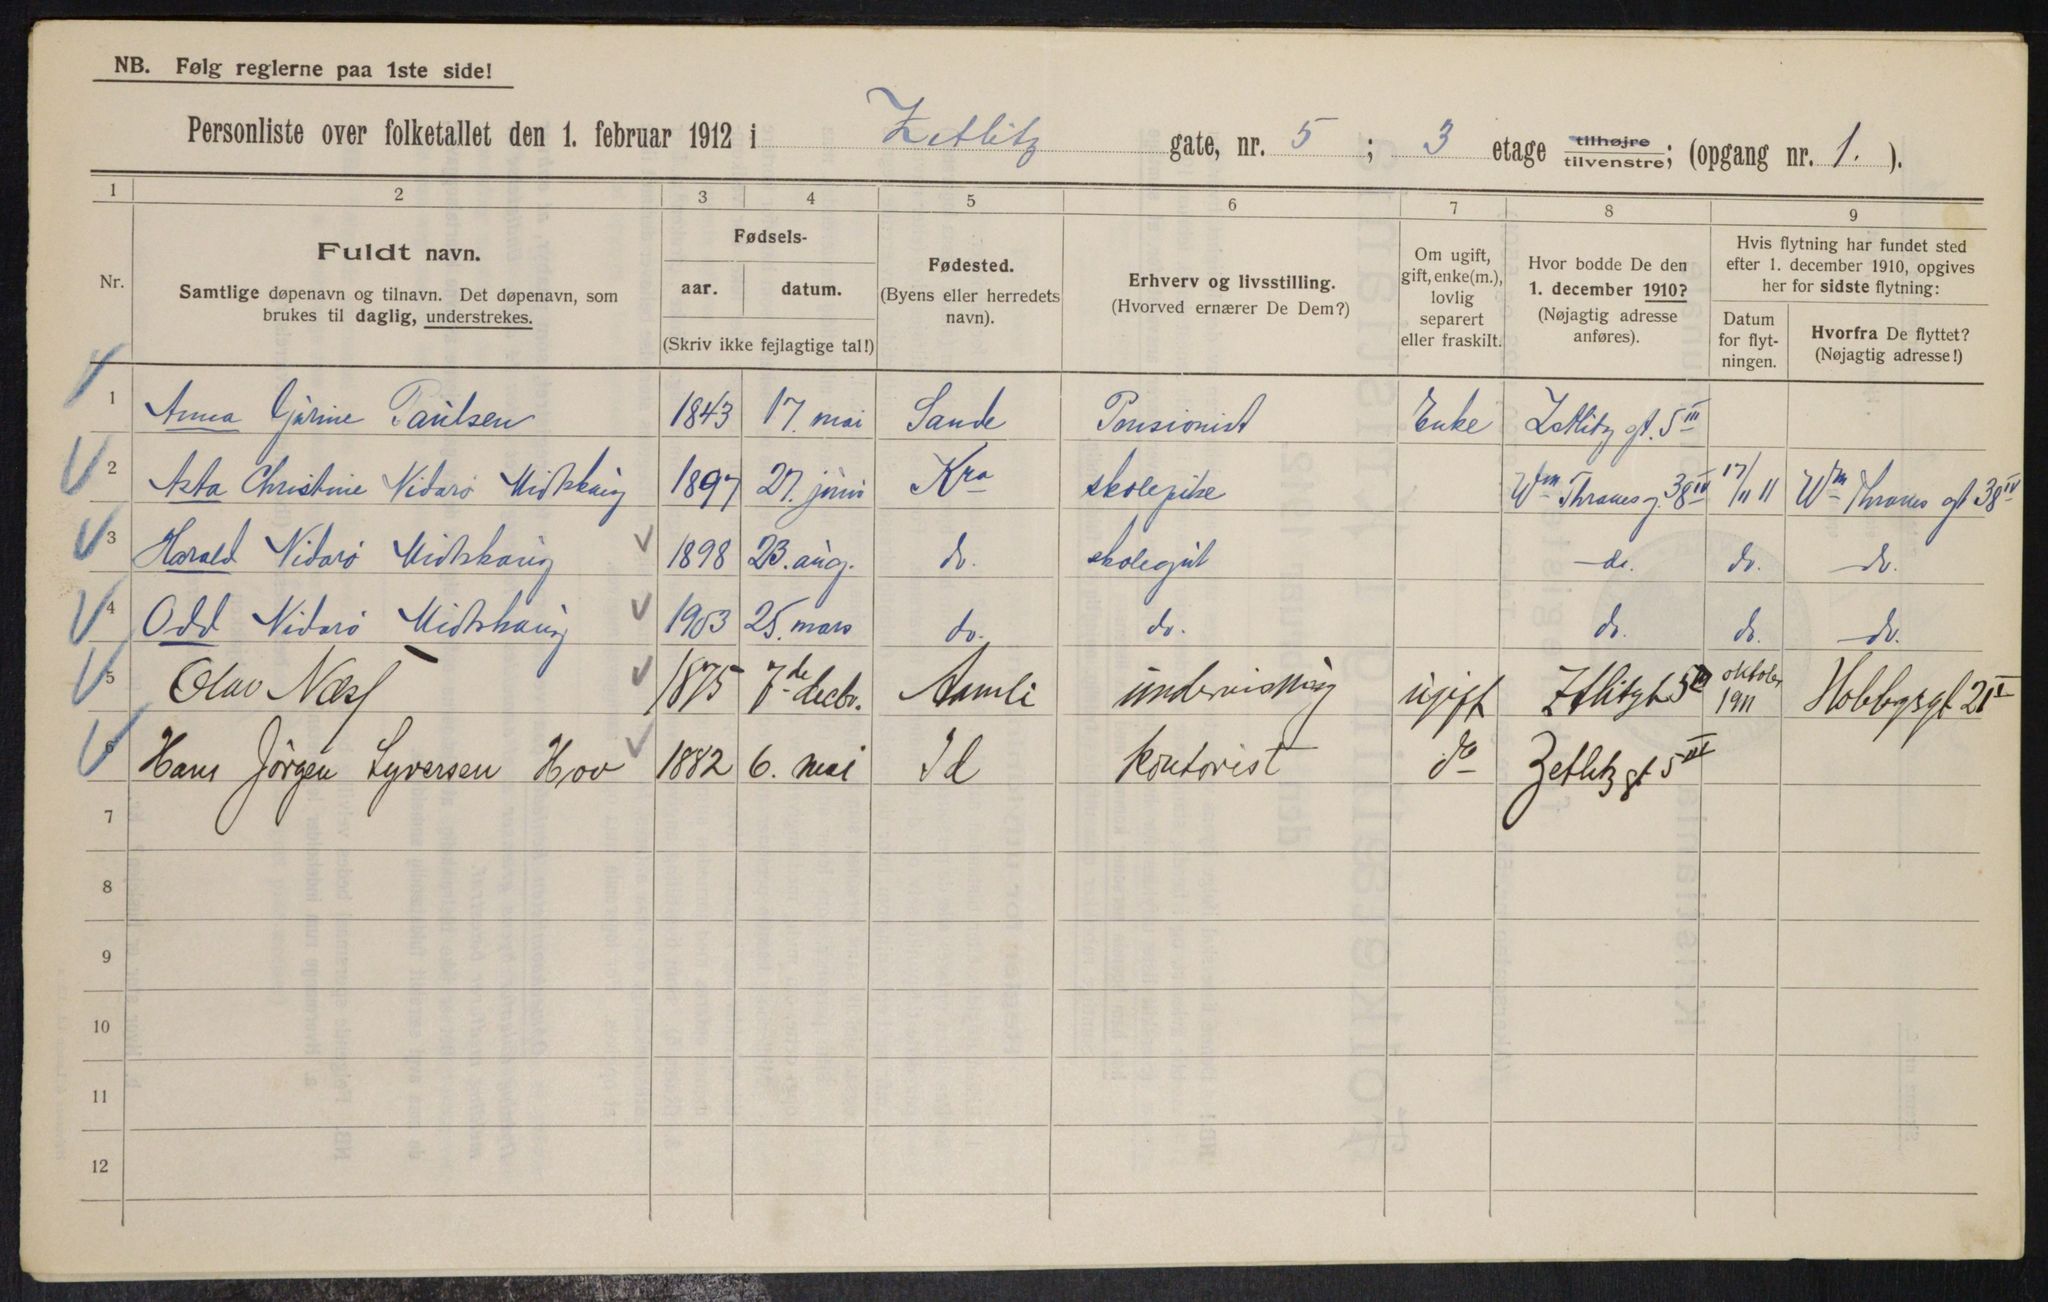 NB. Følg reglerne paa 1ste side!
Personliste over folketallet den 1. februar 1912 i Zetlitz gate, nr. 5 ; 3 etage tilhøjre tilvenstre; (opgang nr. 1. ).
1 2 3 4 5 6 7 8 9
Nr.
Fuldt navn.
Samtlige døpenavn og tilnavn. Det døpenavn, som
brukes til daglig, understrekes.
Fødsels-
aar. datum.
(Skriv ikke fejlagtige tal!)
Fødested.
(Byens eller herredets
navn).
Erhverv og livsstilling.
(Hvorved ernærer De Dem?)
Om ugift,
gift, enke(m.),
lovlig
separert
eller fraskilt.
Hvor bodde De den
1. december 1910?
(Nøjagtig adresse
anføres).
Hvis flytning har fundet sted
efter 1. december 1910, opgives
her for sidste flytning:
Datum
for flyt-
ningen.
Hvorfra De flyttet?
(Nøjagtig adresse!)
1 Anna Gjürine Paulsen 1843 17. mai Sande Pensionist Enke Zetlitz gt. 5 III
2 Asta Christine Nidarö Midtskaug 1897 27. juni Kra skolepike Wm Thranes g. 38 IV 17/11 11 Wm Thranes gt 38 IV
3 Harald Nidarö Midtskaug 1898 23. aug. do. skolegut do. do. do.
4 Odd Nidarö Midtskaug 1903 25. mars do. do. do. do. do.
5 Olav Næsf 1875 7de decbr. Aamli undervisning ugift Zetlitzgt 5 III oktober 1911 Holbbgsgt 21 I
6 Hans Jörgen Syversen Hov 1882 6. mai Id kontorist do Zetlitz gt 5 III
7
8
9
10
11
12